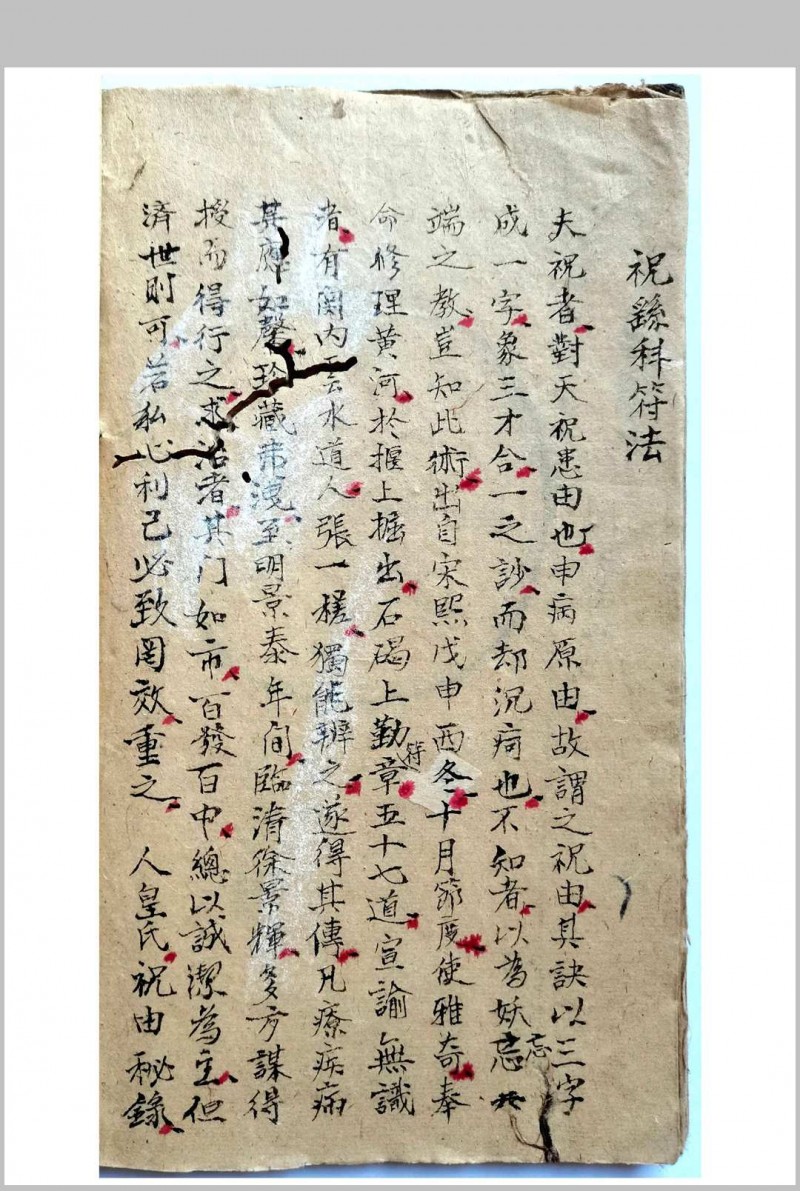 祝繇科符法
夫祝者對天祝患由也申病原由故謂之祝由其訣以三字
成一字象三才合一之訬而却沉疴也不知者以為妖忘
端之教豈知此術出自宋熙戊申酉冬十月節度使雅奇奉
命修理黄河於堰上掘出石碣上勤符章五十七道宣諭無識
者有関内雲水道人張一槎獨能辨之遂得其傳凡療疾病
其應如磬珍藏弗洩至明景泰年间臨清徐景輝多方謀得
授而得行之求治者其门如市百發百中總以誠潔為主但
濟世則可若私心利己必致罔效重之 人皇氏祝由秘錄